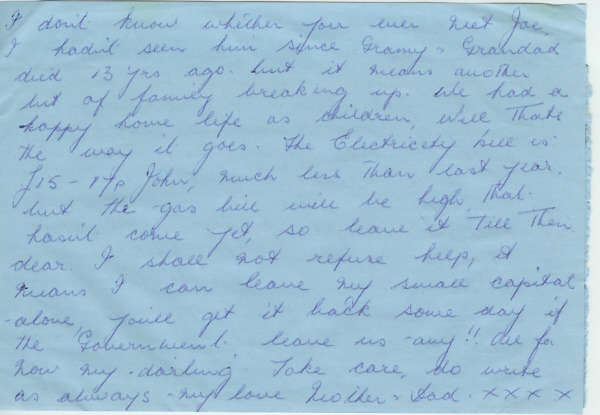 I don't know whether you ever met Joe,
I hadn't seen him since Granny & Grandad
died 13 yrs ago. but it means another
bit of family breaking up. We had a
happy home life as children, Well thats
the way it goes. The Electricety bill is
£15-17p John, much less than last year.
but the gas bill will be high, that
hasn't come yet, so leave it till then
dear. I shall not refuse help, it
means I can leave my small capital
alone, you'll get it back some day if
the Government leave us any!!
now my darling Take care, do write
as always - my love Mother & Dad. xxxx